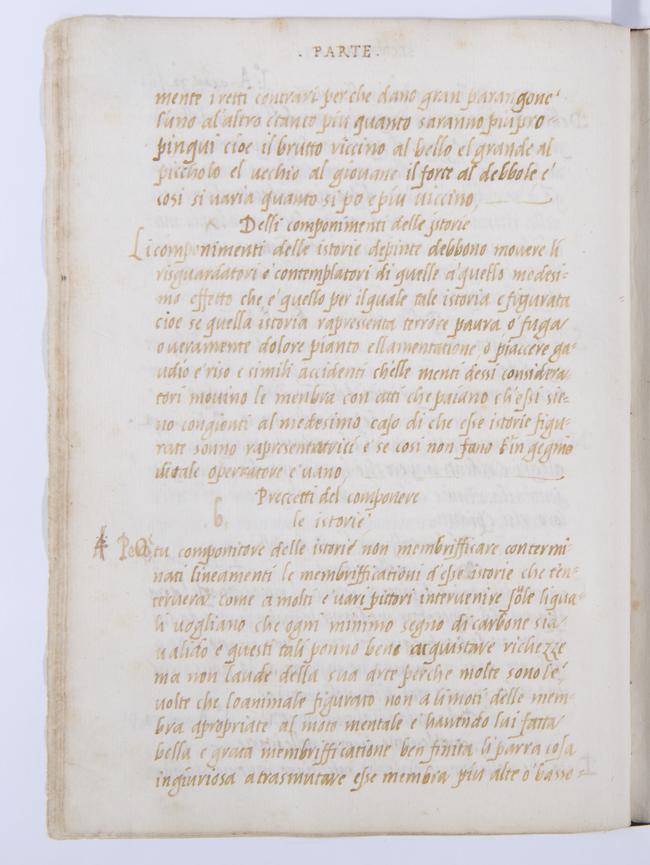 . PARTE .
mente i retti contrari perche dano gran parangone
l'uno al'altro etanto piu quanto saranno piu pro
pinqui cioe il brutto viccino al bello el grande al
piccholo el vechio al giovane il forte al debbole e
cosi si varia quanto si po e piu viccino
Delli componimenti delle istorie
Li componimenti delle istorie depinte debbono movere li
risguardatori e contemplatori di quelle a quello medesi-
mo effetto che e quello per il quale tale istoria e figurata
cioe se quella istoria rapresenta terrore paura o fuga
overamente dolore pianto ellamentatione o piaccere ga-
udio e riso e simili accidenti chelle menti dessi considera-
tori movino le menbra con atti che paiano ch'essi sie-
no congionti al medesimo caso di che esse istorie figu-
rate sonno rapresentatrici e se cosi non fano l'in gegnio
di tale operatore e vano
Preccetti del componere
6. le istorie
tu componitore delle istorie non membrifficare contermi
nati lineamenti le membrifficationi d'esse istorie che t'en-
tervera come a molti e vari pittori intervenire sole li qua-
li vogliano che ogni minimo segno di carbone sia
valido e questi tali ponno bene acquistare richezze
ma non laude della sua arte perche molte sono le
volte che lo animale figurato non a li moti delle mem-
bra apropriate al moto mentale e havendo lui fatta
bella e grata membrifficatione ben finita li parra cosa
ingiuriosa a trasmutare esse membra piu alte o basse-